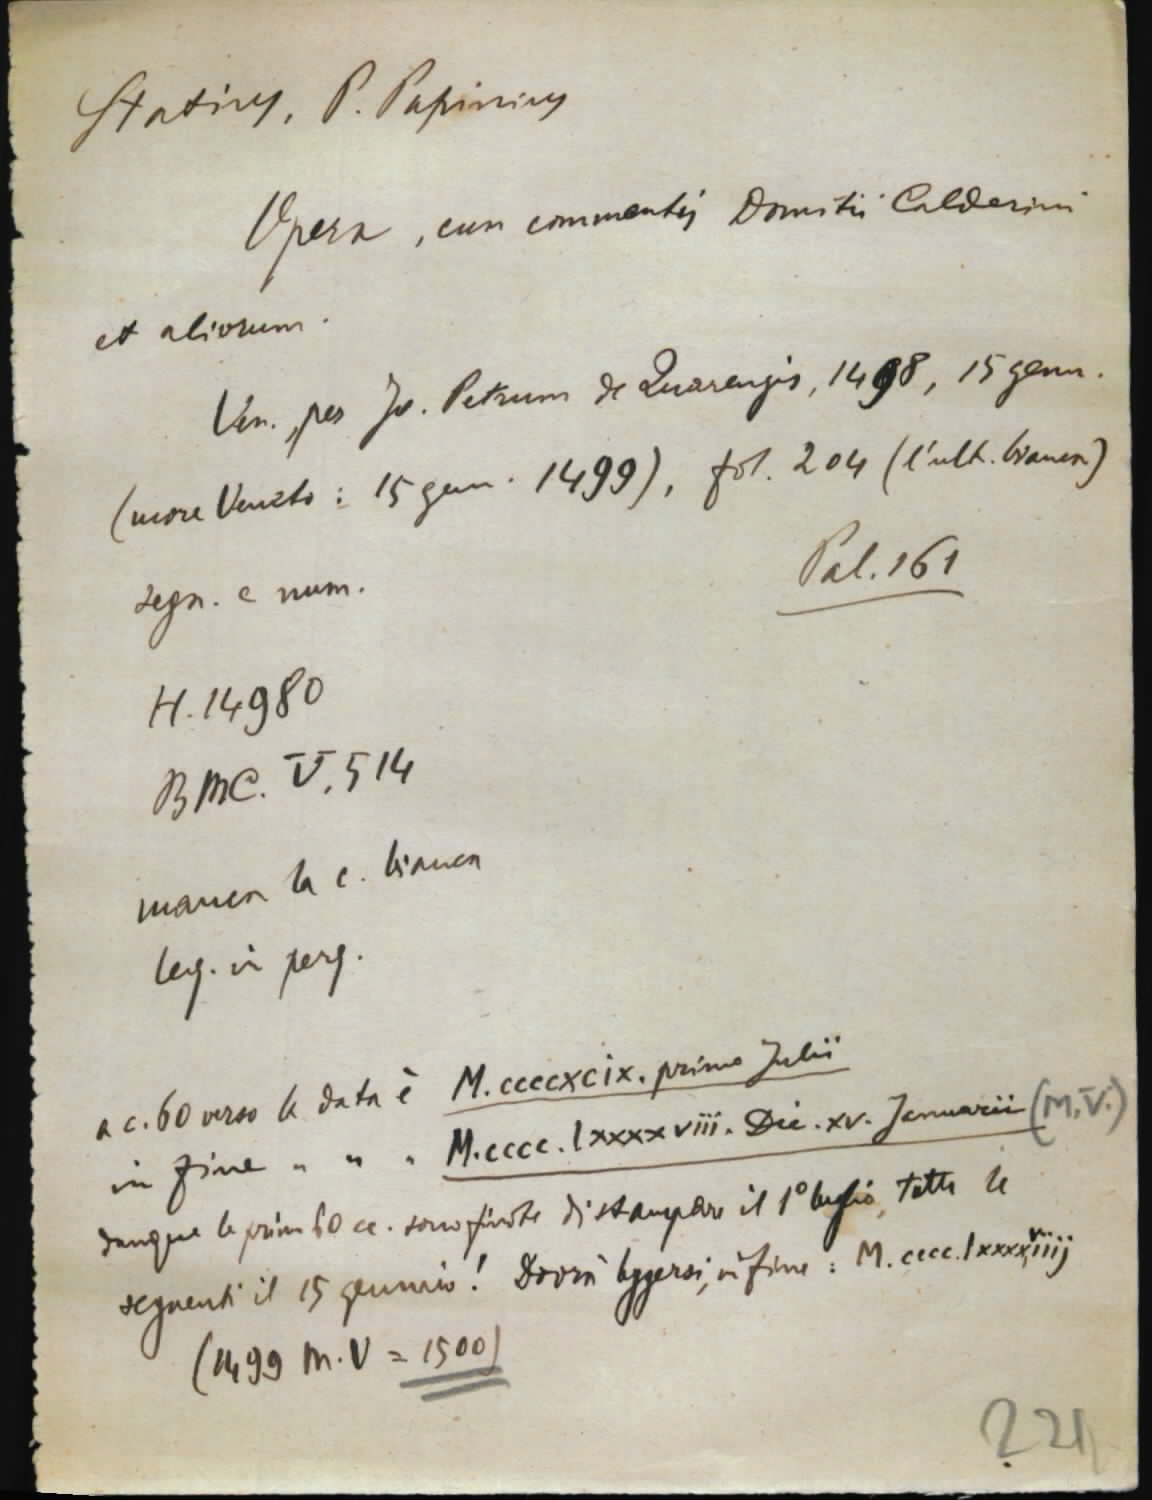 Statius, P. Papinius
Opera, cum commentis Domitii Calderini
et aliorum.
Ven., per Jo. Petrum de Quarengis, 1498, 15 genn.
(more Veneto: 15 genn. 1499), fol. 204 (l'ult. bianca)
segn. e num.
Pal. 161
H. 14980
BMC. V, 514
manca la c. bianca
leg. in perg.
a c. 60 verso la data è M.ccccxcix. primo Julii
in fine " " " M.cccc.lxxxxviii. Die. xv. Januarii (M.V.)
dunque le prime 60 cc. sono finite di stampare il 1° luglio, tutte le
seguenti il 15 gennaio! Dovrà leggersi, in fine: M.cccc.lxxxxviiij
(1499 M.V = 1500)
221